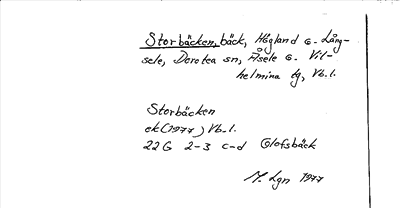 Storbäcken, bäck, Högland o. Lång-
sele, Dorotea sn, Åsele o. Vil-
helmina tg, Vb. l.
Storbäcken
ek (1977) Vb. l.
22G 2-3 c-d Olofsbäck
M. Lgn 1977